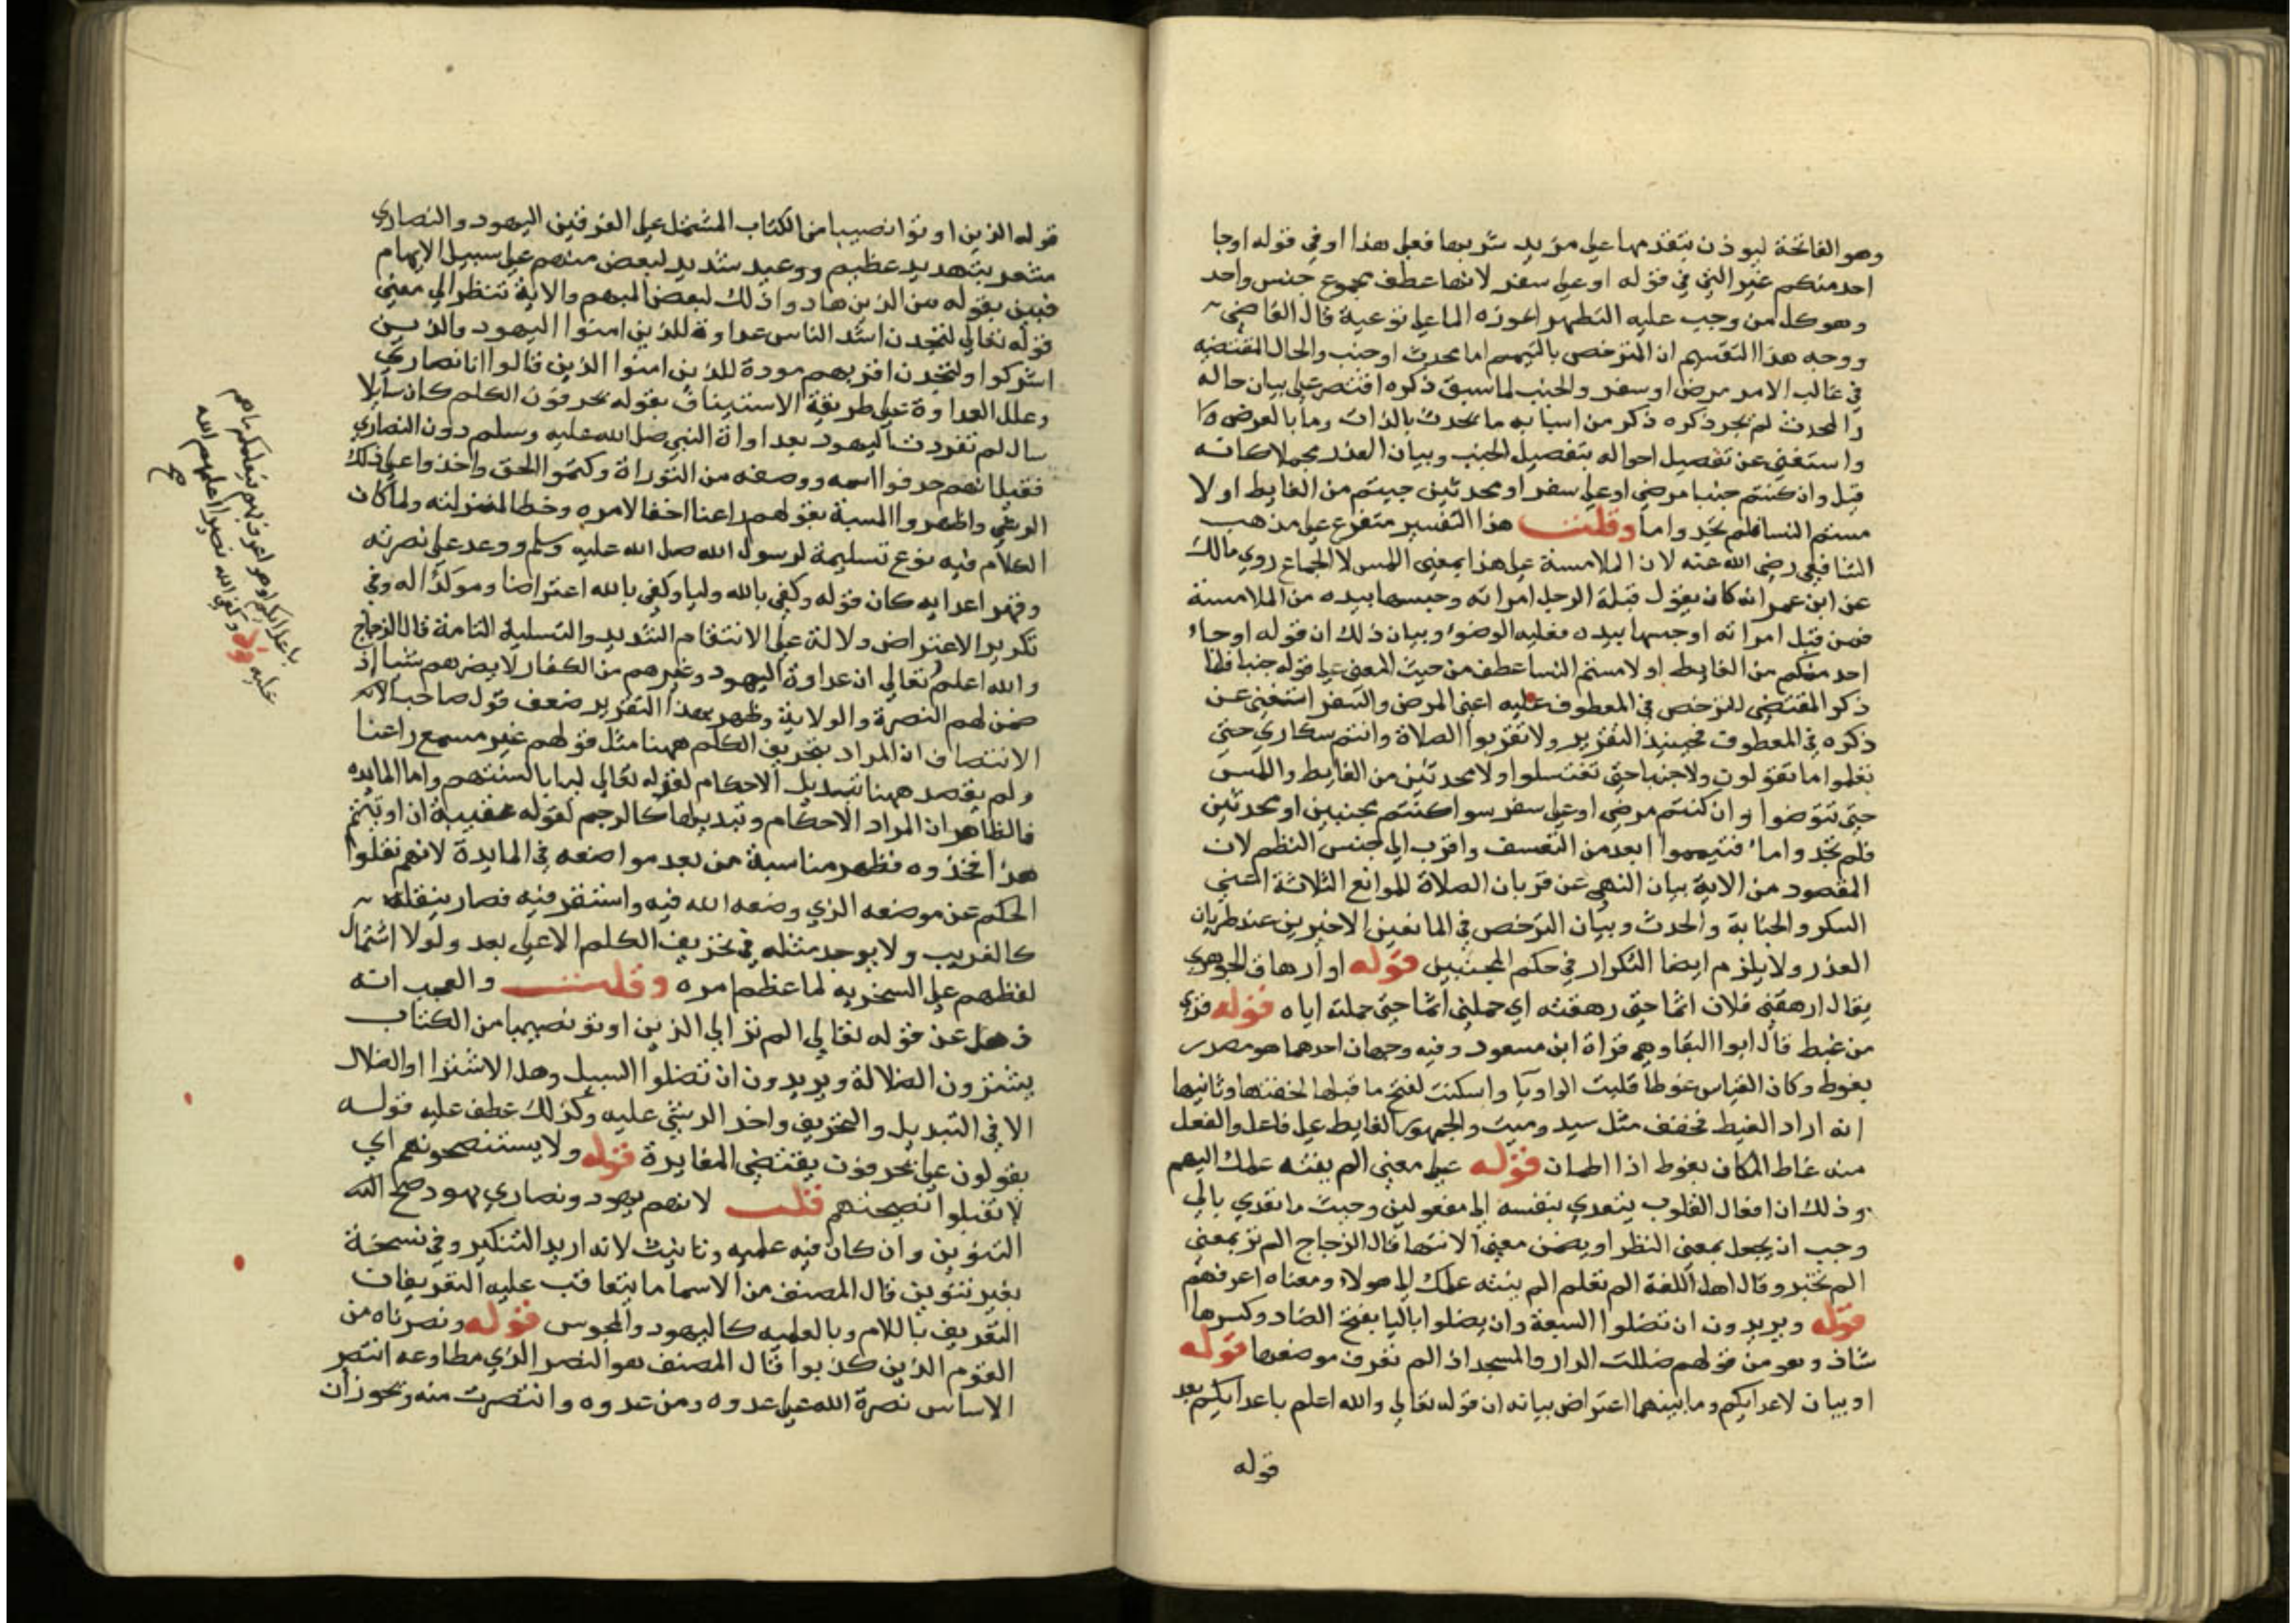 وهو الفاتحة ليوذن بتقدمها على مزيد شربها فعلى هذا او في قوله او جا
احد منكم غير التي في قوله او على سفر لانها عطف مجموع جنس واحد
وهو كل من وجب عليه التطهر اعوزه الما على نوعية قال القاضي
ووجه هذا التقسيم ان المترخص بالتيمم اما محدث او جنب والحال المقتضيه
في غالب الامر مرض او سفر والجنب لما سبق ذكره اقتصر على بيان حاله
والمحدث لم يجر ذكره ذكر من اسبابه ما يحدث بالذات وما بالعرض
واستغنى عن تفصيل احواله بتفصيل الجنب وبيان العذر مجملا كانه
قيل وان كنتم جنبا مرضى او على سفر او محدثين جيتم من الغايط او لا
مستم النسا فلم تجدوا ما وقلت هذا التفسير متفرع على مذهب
الشافعي رضي الله عنه لان الملامسة على هذا بمعنى اللمس لا الجماع روى مالك
عن ابن عمر انه كان يقول قبلة الرجل امراته وجسها بيده من الملامسة
فمن قبل امراته او جسها بيده فعليه الوضوء وبيان ذلك ان قوله او جاء
احد منكم من الغايط او لامستم النسا عطف من حيث المعنى على قوله جنبا فلما
ذكر المقتضي للترخص في المعطوف عليه اعني المرض والسفر استغنى عن
ذكره في المعطوف فحينيذ التقرير ولا تقربوا الصلاة وانتم سكارى حتى
تعلموا ما تقولون ولا جنبا حتى تغتسلوا ولا محدثين من الغايط واللمس
حتى تتوضوا وان كنتم مرضى او على سفر سوا كنتم مجنبين او محدثين
فلم تجدوا ماء فتيمموا ابعد من التعسف واقرب الى جنس النظم لان
المقصود من الاية بيان النهي عن قربان الصلاة للموانع الثلاثة اعني
السكر والجنابة والحدث وبيان الترخص في المانعين الاخيرين عند طريان
العذر ولا يلزم ايضا التكرار في حكم المجنبين قوله او ارهاق الجوهري
يقال ارهقني فلان اثما حتى رهقته اي حملني اثما حتى حملته اياه قوله قري
من غيط قال ابو البقا وهي قراة ابن مسعود وفيه وجهان احدهما هو مصدر
يغوط وكان القياس غوطا قلبت الواو يا واسكنت لفتح ما قبلها لخفتها وثانيها
انه اراد الغيط فخفف مثل سيد وميت والجمهور الغايط على فاعل والفعل
منه غاط المكان يغوط اذا اطمان قوله على معنى الم ينته علمك اليهم
وذلك ان افعال القلوب يتعدى بنفسه الى مفعولين وحيث ما تعدي بالى
وجب ان يجعل بمعنى النظر او يضمن معنى الانتها قال الزجاج الم تر بمعنى
الم تخبر وقال اهل اللغة الم تعلم الم ينته علمك الى هولاء ومعناه اعرفهم
قوله ويريدون ان تضلوا السبعة وان يضلوا باليا بفتح الضاد وكسرها
شاذ وهو من قولهم ضللت الدار والمسجد اذا لم تعرف موضعها قوله
او بيان لاعدايكم وما بينهما اعتراض بيانه ان قوله تعالى والله اعلم باعدايكم بعد
قوله
قوله الذين اوتوا نصيبا من الكتاب المشتمل على الفرقتين اليهود والنصارى
مشعر بتهديد عظيم ووعيد شديد لبعض منهم على سبيل الابهام
فبين بقوله من الذين هادوا ذلك لبعض المبهم والاية تنظر الى معنى
قوله تعالى لتجدن اشد الناس عداوة للذين امنوا اليهود والذين
اشركوا ولتجدن اقربهم مودة للذين امنوا الذين قالوا انا نصارى
وعلل العداوة على طريقة الاستيناف بقوله يحرفون الكلم كان سايلا
سال لم تفردت اليهود بعداواة النبي صلى الله عليه وسلم دون النصارى
فقيل انهم حرفوا اسمه ووصفه من التوراة وكتموا الحق واخذوا على ذلك
الرشى واظهروا المسبة بقولهم راعنا اخفا لامره وحطا لمنزلته ولما كان
الكلام فيه نوع تسلية لرسول الله صلى الله عليه وسلم ووعد على نصرته
وقهر اعدايه كان قوله وكفى بالله وليا وكفى بالله اعتراضا وموكدا له وفي
تكرير الاعتراض دلالة على الانتقام الشديد والتسلية التامة قال الزجاج
والله اعلم تعالى ان عداوة اليهود وغيرهم من الكفار لا يضرهم شيا اذ
ضمن لهم النصرة والولاية وظهر بهذا التقرير ضعف قول صاحب
الانتصاف ان المراد بتحريف الكلم ههنا مثل قولهم غير مسمع راعنا
ولم يقصد ههنا تبديل الاحكام لقوله تعالى ليا بالسنتهم واما المايده
فالظاهر ان المراد الاحكام وتبديلها كالرجم لقوله عقيبه ان اوتيتم
هذا فخذوه فظهر مناسبة من بعد مواضعه في المايدة لانهم نقلوا
الحكم عن موضعه الذي وضعه الله فيه واستقر فيه فصار بنقله
كالغريب ولا يوجد مثله في تحريف الكلم الا على بعد ولولا اشتمال
لفظهم على السخريه لما عظم امره وقلت والعجب انه
ذهل عن قوله تعالى الم تر الى الذين اوتو نصيبا من الكتاب
يشترون الضلالة ويريدون ان تضلوا السبيل وهل الاشترا والضلال
الا في التبديل والتحريف واخذ الرشى عليه وكذلك عطف عليه قوله
يقولون على يحرفون يقتضي المغايرة قوله ولا يستنصحونهم اي
لا تقبلوا نصيحتهم قلت لانهم يهود ونصارى يهود صح الله
التنوين وان كان فيه علميه وتانيث لانه اريد التنكير وفي نسخة
بغير تنوين قال المصنف من الاسما ما يتعاقب عليه التعريفات
التعريف باللام وبالعلميه كاليهود والمجوس قوله ونصرناه من
القوم الذين كذبوا قال المصنف هو النصر الذي مطاوعه انتصر
الاساس نصرة الله على عدوه ومن عدوه وانتصرت منه وتجوز ان
باعدايكم
عليه قوله وكفى بالله نصيرا